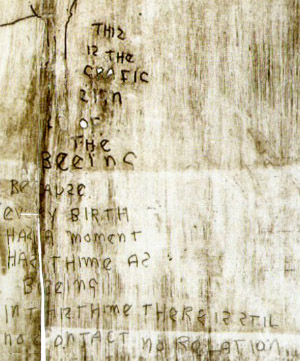 THIS
IS THE
GRAFIC
SIGN
OF
THE
BEEING
BECAUZE
EVERY BIRTH
HAS A MOMENT
HAS THIME AS
BEEING
IN THIS THIME THERE IS STIL
NO CONTACT NO RELATION